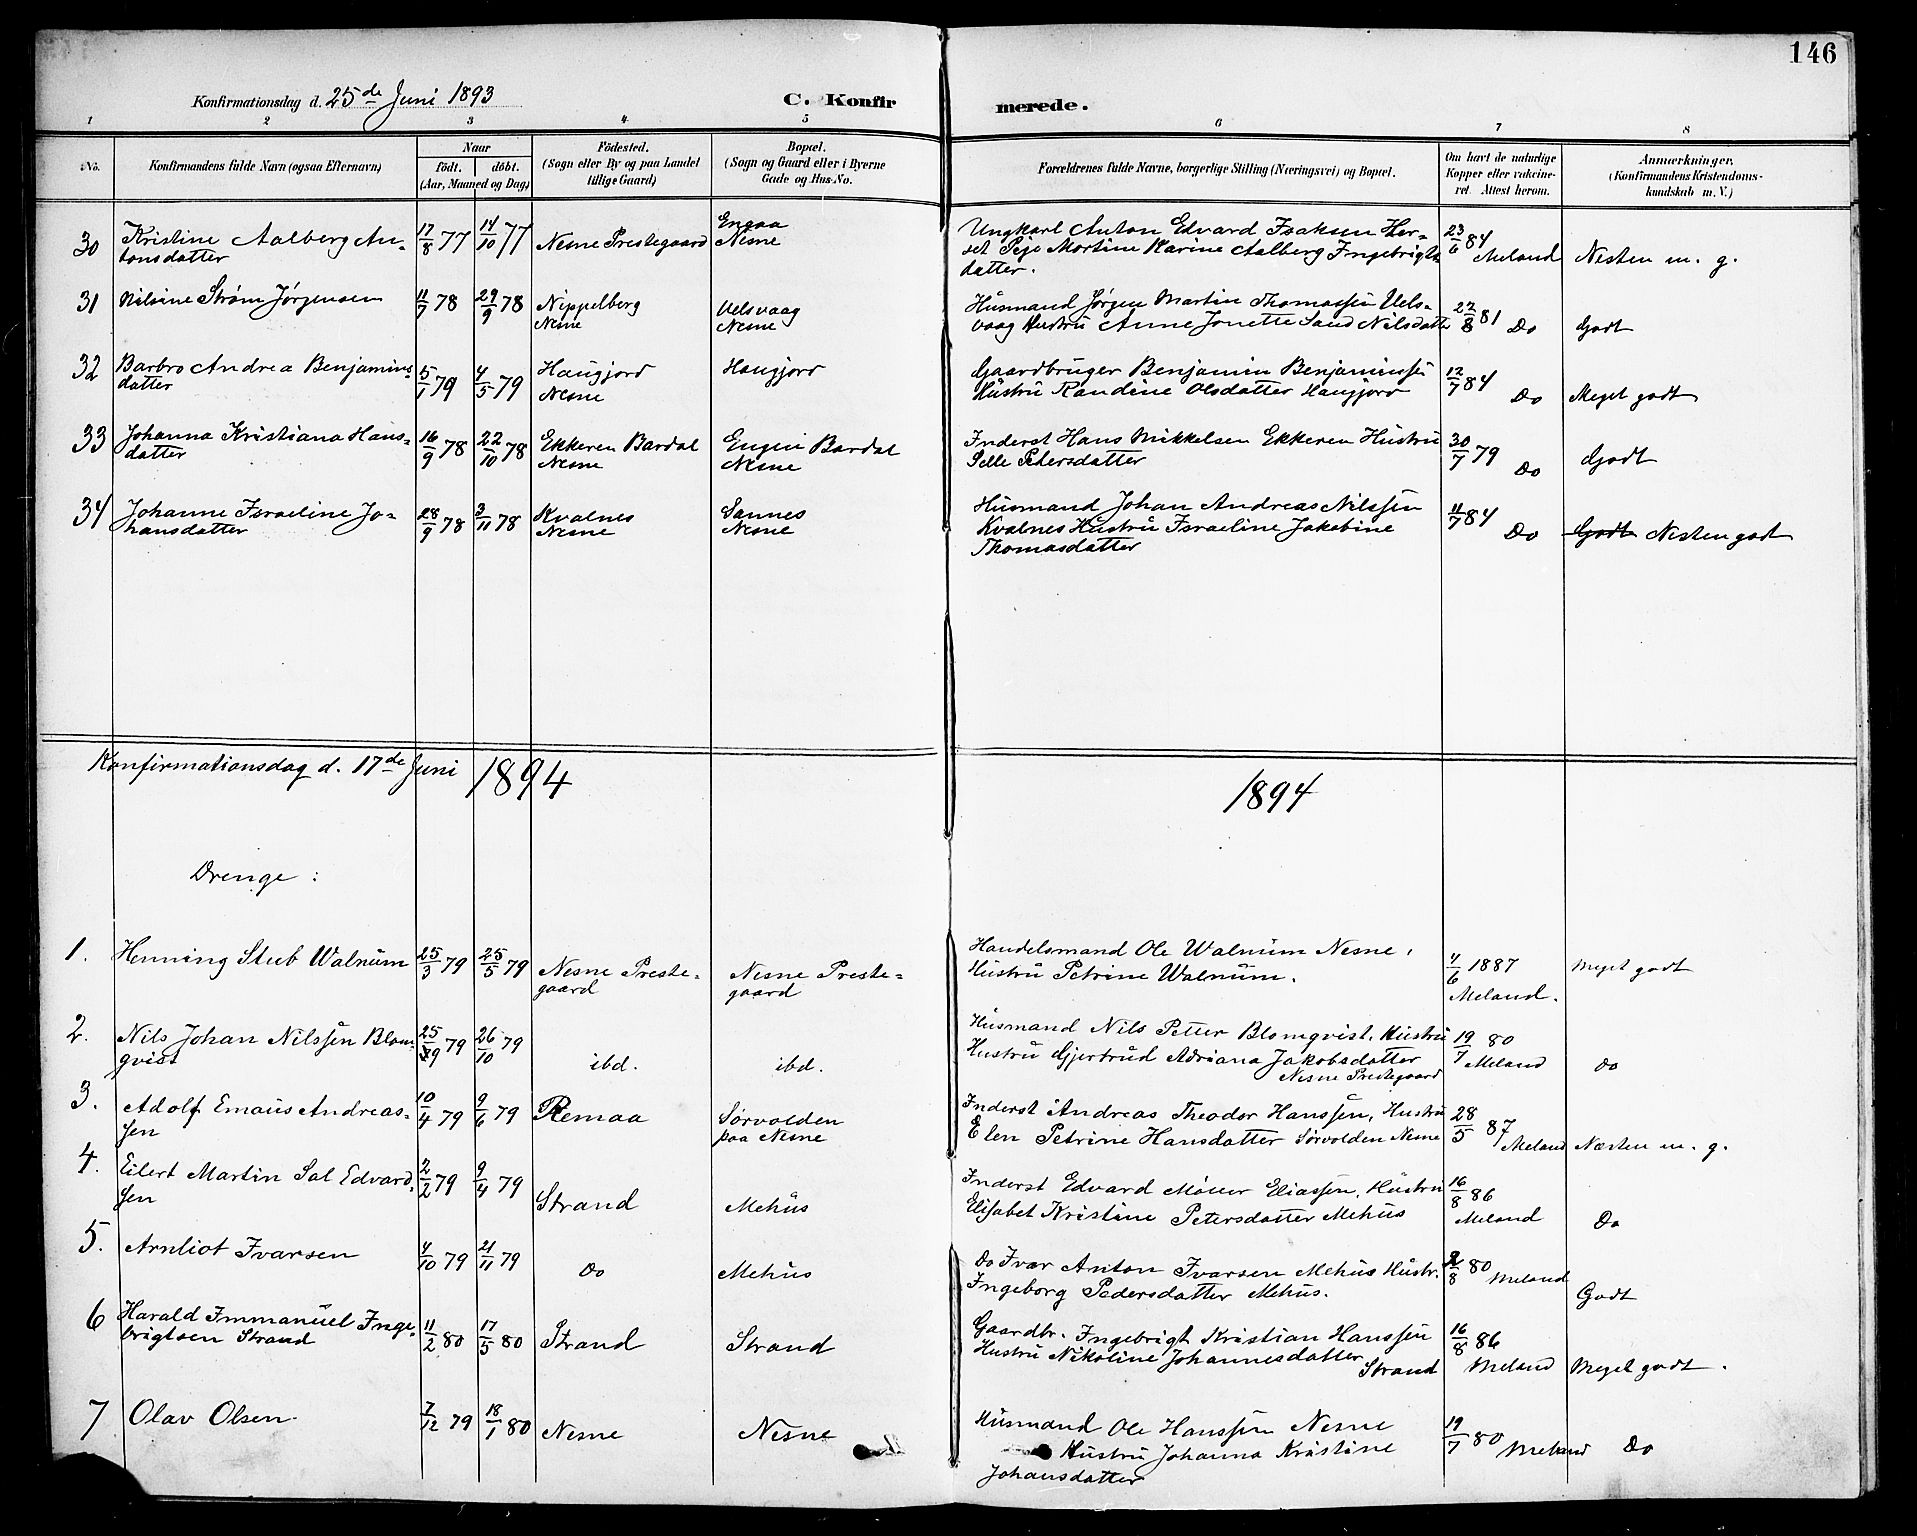 146
Konfirmationsdag d. 25de Juni 1893
C. Konfirmerede.
1 2 3 4 5 6 7 8
No.
Konfirmandens fulde Navn (ogsaa Efternavn)
Naar
født. døbt.
(Aar, Maaned og Dag)
Fødested.
(Sogn eller By og paa Landet
tillige Gaard)
Bopæl.
(Sogn og Gaard eller i Byerne
Gade og Hus-No.
Forældrenes fulde Navne, borgerlige Stilling (Næringsvei) og Bopæl.
Om havt de naturlige
Kopper eller vakcine-
ret. Attest herom.
Anmærkninger.
(Konfirmandens Kristendoms-
kundskab m. V.)
30 Kristine Aalberg An-
tonsdatter
17/8 77 14/10 77 Nesne Prestegaard
Engaa
Nesne
Ungkarl Anton Edvard Isaksen Her-
set Pige Martine Karine Aalberg Ingebrigts
datter.
23/6 84 Meland Nesten m. g.
31 Nilsine Strøm Jørgensen
11/7 78 29/9 78 Nippelberg
Nesne
Uelsvaag
Nesne
Husmand Jørgen Martin Thomassen Uels-
vaag Hustru Anne Jonette Sand Nilsdatter
27/8 81 Do Godt
32 Barbro Andrea Benjamins-
datter
15/1 79 4/5 79 Haugjord
Nesne
Haugjord
Gaardbruger Benjamin Benjaminssen
Hustru Randine Olsdatter Haugjord
12/7 84 Do Meget godt
33 Johanna Kristiana Hans-
datter
16/9 78 22/10 78 Ekkeren Bardal
Nesne
Engen Bardal
Nesne
Inderst Hans Mikkelsen Ekkeren Hustru
Pelle Petersdatter
30/7 79 Do Godt
34 Johanne Israeline Jo-
hansdatter
28/9 78 3/11 78 Kvalnes
Nesne
Sannes
Nesne
Husmand Johan Andreas Nilssen
Kvalnes Hustru Israeline Jakobine
Thomasdatter
11/7 84 Do Godt Nesten godt
Konfirmationsdag d. 17de Juni 1894
1894
Drenge :
1. Henning Stub Walnum
25/3 79 25/5 79 Nesne Preste-
gaard
Nesne Preste-
gaard
Handelsmand Ole Walnum Nesne,
Hustru Petrine Walnum.
4/6 1887
Meland.
Meget godt
2. Nils Johan Nilssen Blom-
qvist
25/9 79 26/10 79
ibd. ibd.
Husmand Nils Petter Blomqvist, Hustru
Hustru Gjertrud Adriana Jakobsdatter
Nesne Prestegaard
19/7 80
Meland Do
3. Adolf Emaus Andreas-
sen
10/4 79 9/6 79 Remaa
Sørvolden
paa Nesne
Inderst Andreas Theodor Hanssen, Hustru
Elen Petrine Hansdatter Sørvolden Nesne
28/5 87 Meland Næsten m. g.
4. Eilert Martin Sal Edvard-
sen
2/2 79 9/4 79
Strand Mehus
Inderst Edvard Møller Eliassen, Hustru
Elisabet Kristine Petersdatter Mehus
16/8 86
Meland Do
5. Arnliot Ivarsen
4/10 79 21/11 79
Do Mehus
Do Ivar Anton Ivarsen Mehus Hustr.
Ingeborg Pedersdatter Mehus.
2/8 80 Meland
Godt
6 Harald Immanuel Inge-
brigtsen Strand
11/2 80 17/5 80 Strand Strand
Gaardbr. Ingebrigt Kristian Hanssen
Hustru Nikoline Johannesdatter
Strand
16/8 86
Meland Meget godt.
7 Olav Olsen
7/12 79 18/1 80 Nesne Nesne
Husmand Ole Hanssen Nesne
Hustru Johanna Kristine
Johansdatter
19/7 80 Meland Do